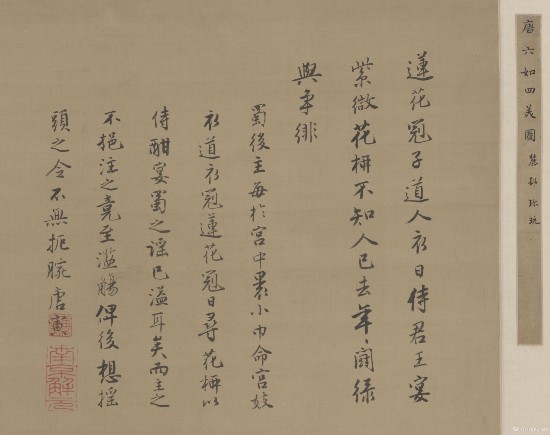 唐六如四美圖 珍玩
蓮花冠子道人衣日侍君王宴
紫微花柳不知人已去年〻鬪綠
與爭緋
蜀後主每於宮中裹小巾命宮妓
衣道衣冠蓮花冠日尋花柳以
侍酣宴蜀之謠已溢耳矣而主之
不挹注之竟至濫觴俾後想搖
頭之令不無扼腕唐寅
南京解元